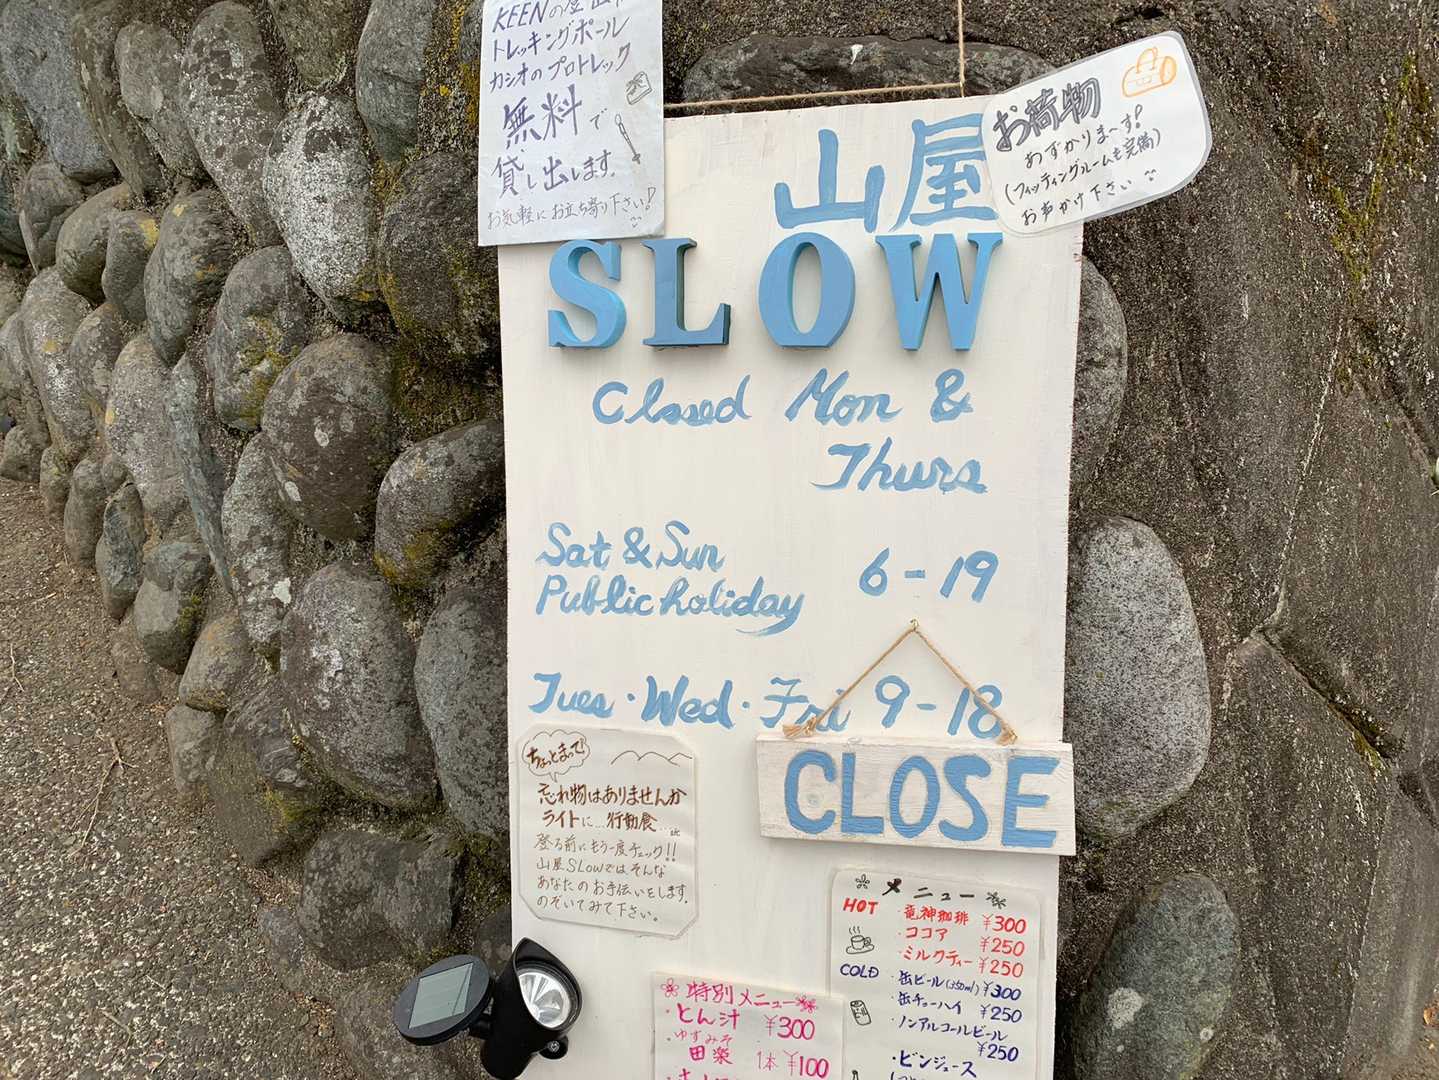 KEENの登山
トレッキングポール
カシオのプロトレック
無料で
貸し出します.
お気軽にお立ち寄り下さい!
お荷物
あずかりま〜す!
(フィッティングルームも完備)
お声がけ下さい
山屋
SLOW
Closed Mon &
Thurs
Sat & Sun
Public holiday 6-19
Tues・Wed・Fri 9-18
CLOSE
ちょっとまって
忘れ物はありませんか
ライトに…行動食…etc
登る前にもう一度チェック!!
山屋SLOWではそんな
あなたのお手伝いをします.
のぞいてみて下さい。
メニュー
HOT
・竜神珈琲 ¥300
・ココア ¥250
・ミルクティー ¥250
COLD
・缶ビール(350ml) ¥300
・缶チューハイ ¥250
・ノンアルコールビール
¥250
・ビンジュース
特別メニュー
・とん汁 ¥300
・ゆずみそ
田楽 1本 ¥100